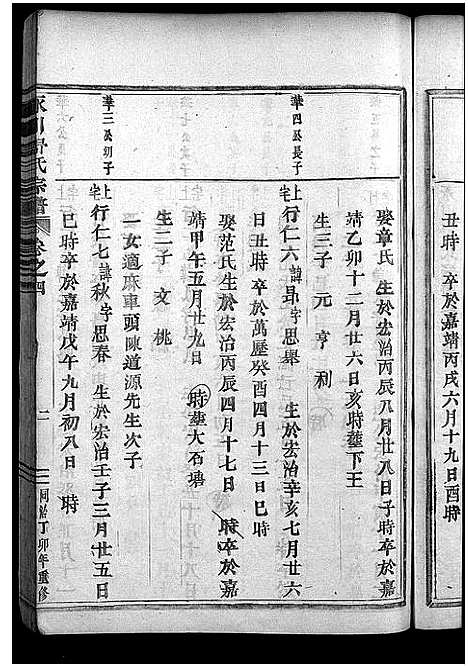 丑時 卒於嘉靖丙戌六月十九日酉時
娶章氏 生於宏治丙辰八月廿八日子時卒於嘉
靖乙卯十二月廿六日亥時塟下王
生三子 元 亨 利
華四公長子
上宅行仁六諱昻字思舉 生於宏治辛亥七月廿六
日丑時 卒於萬歷癸酉四月十三日巳時
娶范氏生於宏治丙辰四月十七日 時卒於嘉
靖甲午五月廿九日 時塟大石塘
生二子 文 桃
一女適麻車頭陳道源先生次子
華三公幼子
上宅行仁七諱秋字思春 生於宏治壬子三月廿五日
巳時卒於嘉靖戊午九月初八日 時
氏宗譜 卷之四 二 同治丁卯年重修